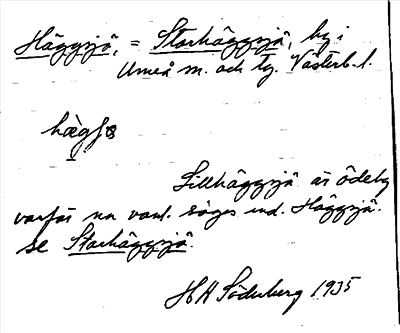 Häggsjö, = Storhäggsjö, by i
Umeå m. och tg. Västerb. l.
Lillhäggsjö är ödeby
varför nu vanl. säges end. Häggsjö.
se Storhäggsjö.
H H Söderberg 1935